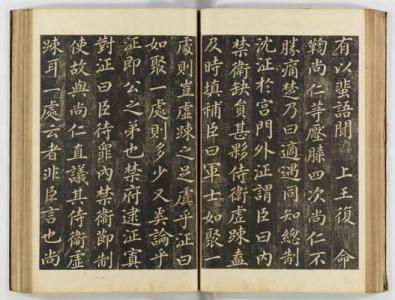 有以蜚語聞　上王復命
鞫尚仁等壓膝四次尚仁不
勝痛楚乃曰適遇同知總制
沈泟於宮門外泟謂臣曰內
禁衛缺員甚夥侍衛虛踈盍
及時填補臣曰軍士如聚一
處則豈虛踈之足虞乎泟曰
如聚一處則多少又奚論乎
泟即公之弟也禁府逮泟寘
對泟曰臣待辠內禁衛節制
使故與尚仁直議其侍衛虛
踈耳一處云者非臣言也尚